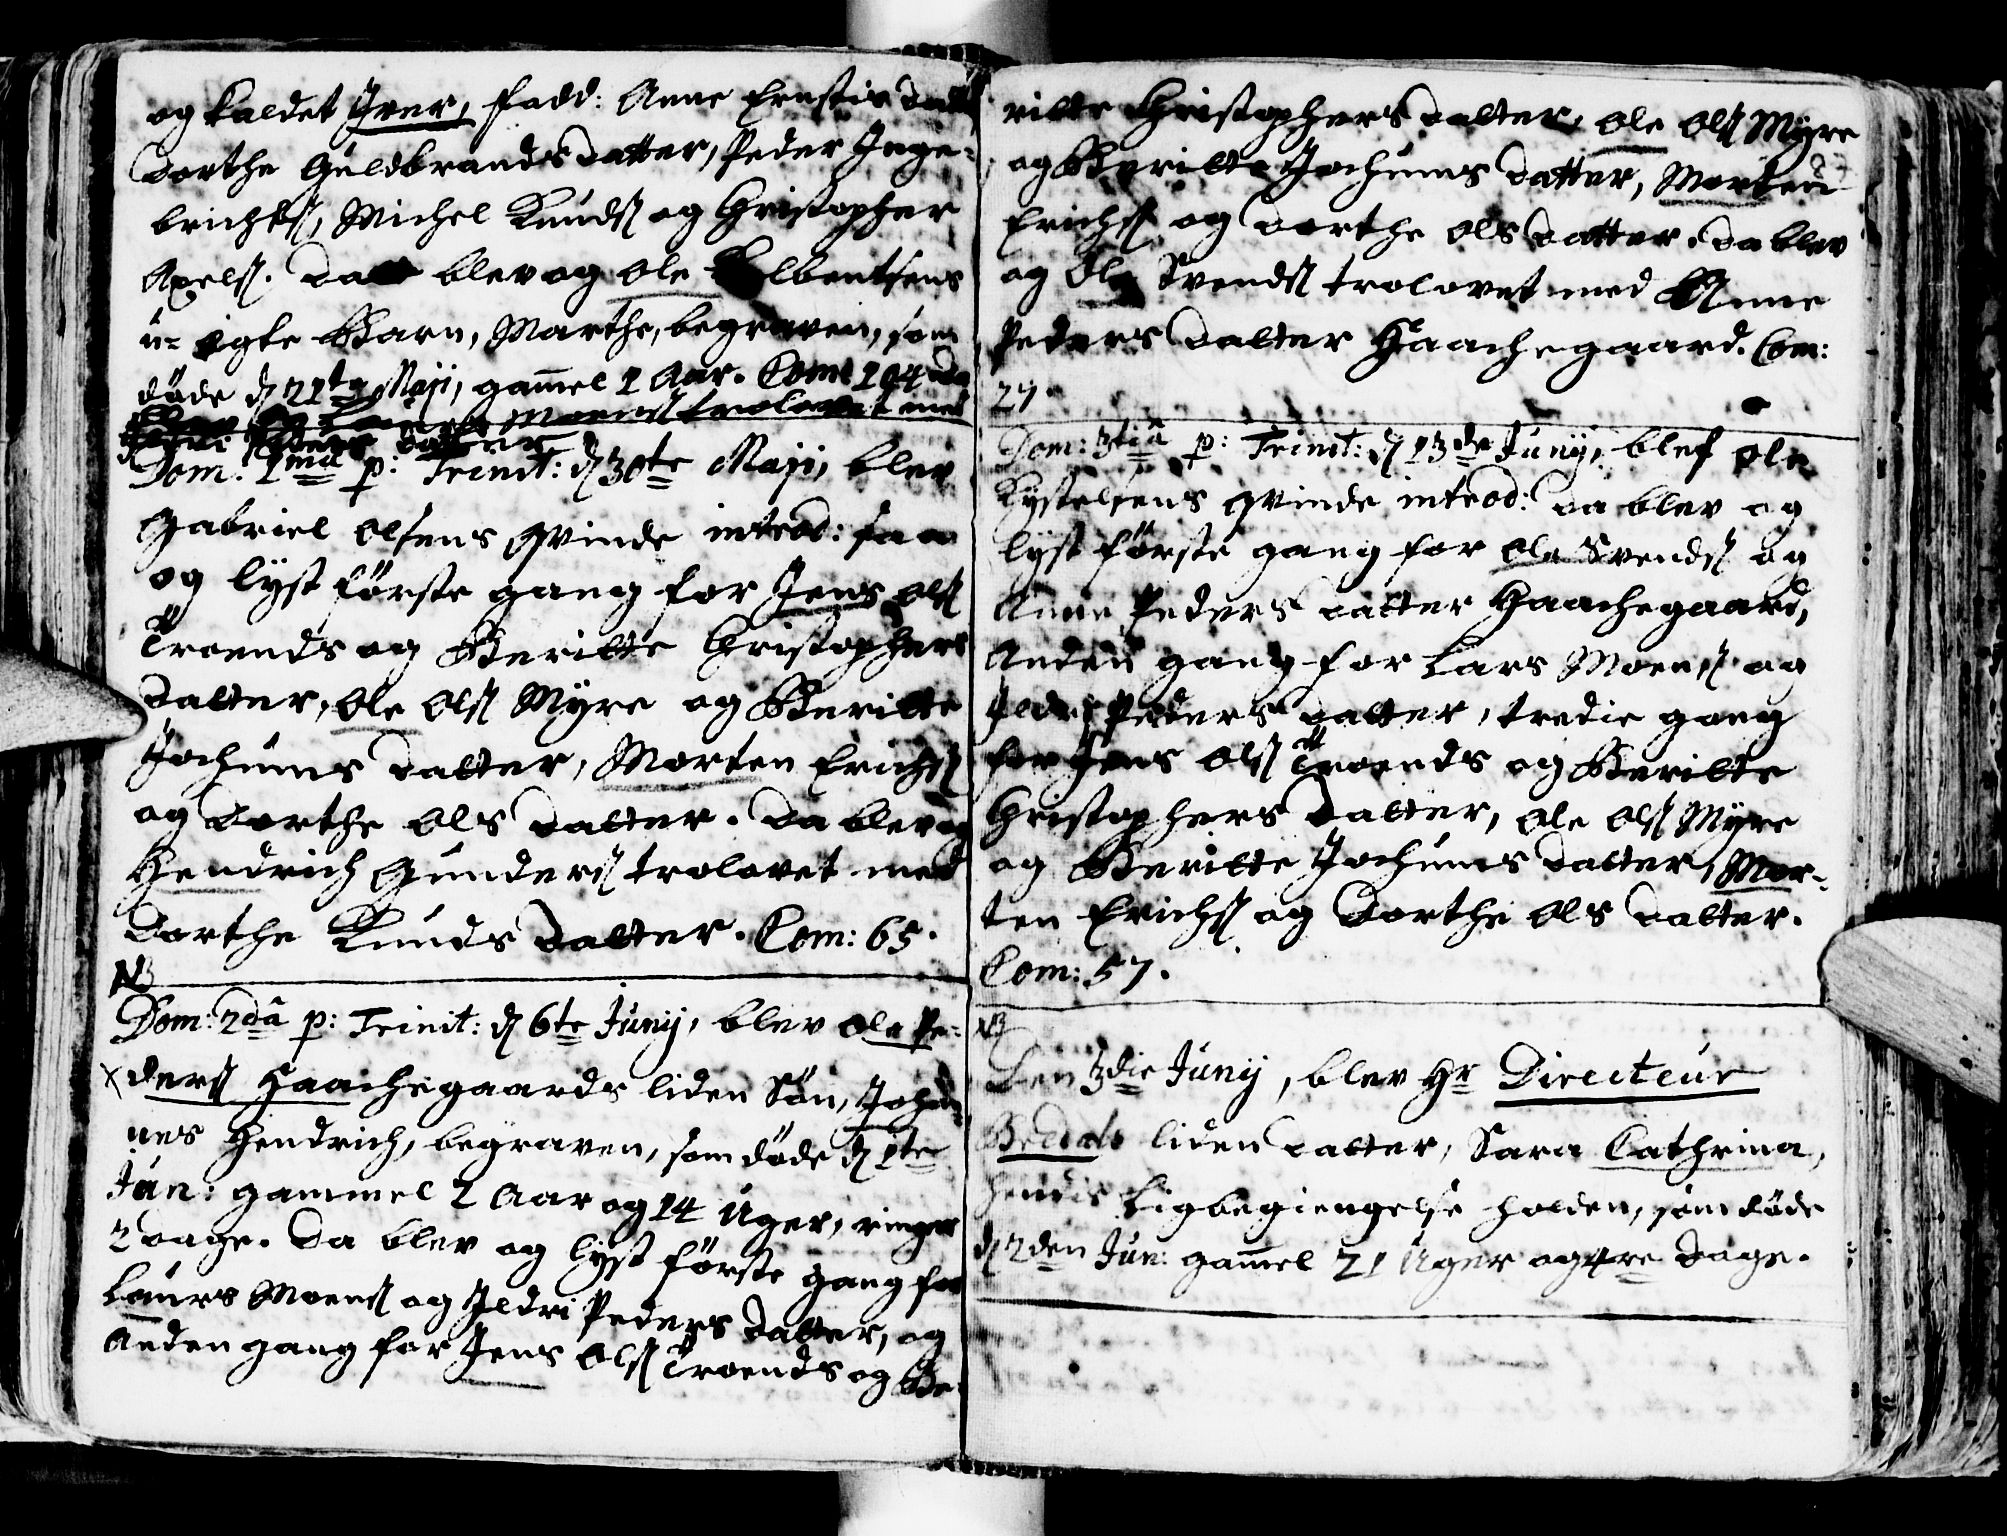 og kaldet Iver, fadd: Anne Ernstis datt
Dorthe Guldbrands datter, Peder Inge-
brichts, Michel Knuds og Christopher
Axels. Da blev og Ole Elbentsens
u-ægte Barn, Marthe, begraven, som
døde d 21te Maji, gam̄el 1 Aar. Com 104
Moens trolovet med
Peders datter
Dom. 1mâ p: Trinit: d 30te Maji, blev
Gabriel Olsens Qvinde introd: saa
og lyst første gang for Jens Ols
Troends og Beritte Christophers
datter, Ole Ols Myre og Beritte
Jochums datter, Morten Erichs
og Dorthe Ols datter. Da blev og
Hendrich Gunders trolovet med
Dorthe Knuds datter. Com: 65.
NB
Dom: 2dâ p: Trinit: d 6te Junij, blev Ole Pe-
x ders Haachegaards liden Søn, Johan-
nes Hendrich, begraven, som døde d 1te
Jun: gammel 2 Aar og 14 Uger, ringer
2 dage. Da blev og lyst første gang for
Laurs Moens og Ildri Peders datter, og
Anden gang for Jens Ols Troends og Be-
ritte Christophers datter, Ole Ols Myre
og Beritte Jochums datter, Morten
Erichs og Dorthe Ols datter. Da blev
og Ole Svends trolovet med Anne
Peders datter Haachegaard. Com:
27.
Dom: 3tiâ p: Trinit: d 13de Junij, blef Ole
Kystelsens Qvinde introd: Da blev og
lyst første gang for Ole Svends og
Anne Peders datter Haachegaard,
Anden gang for Lars Moens og
Ildri Peders datter, tredie gang
for Jens Ols Troends og Beritte
Christophers datter, Ole Ols Myre
og Beritte Jochums datter, Mor-
ten Erichs og Dorthe Ols datter.
Com: 57.
NB
Den 3die Junij, blev Hr Directeur
Bredals liden datter, Sara Cathrina,
hendis Ligbegiengelse holden, som døde
d 2den Jun: gam̄el 21 Uger og 4re Dage.